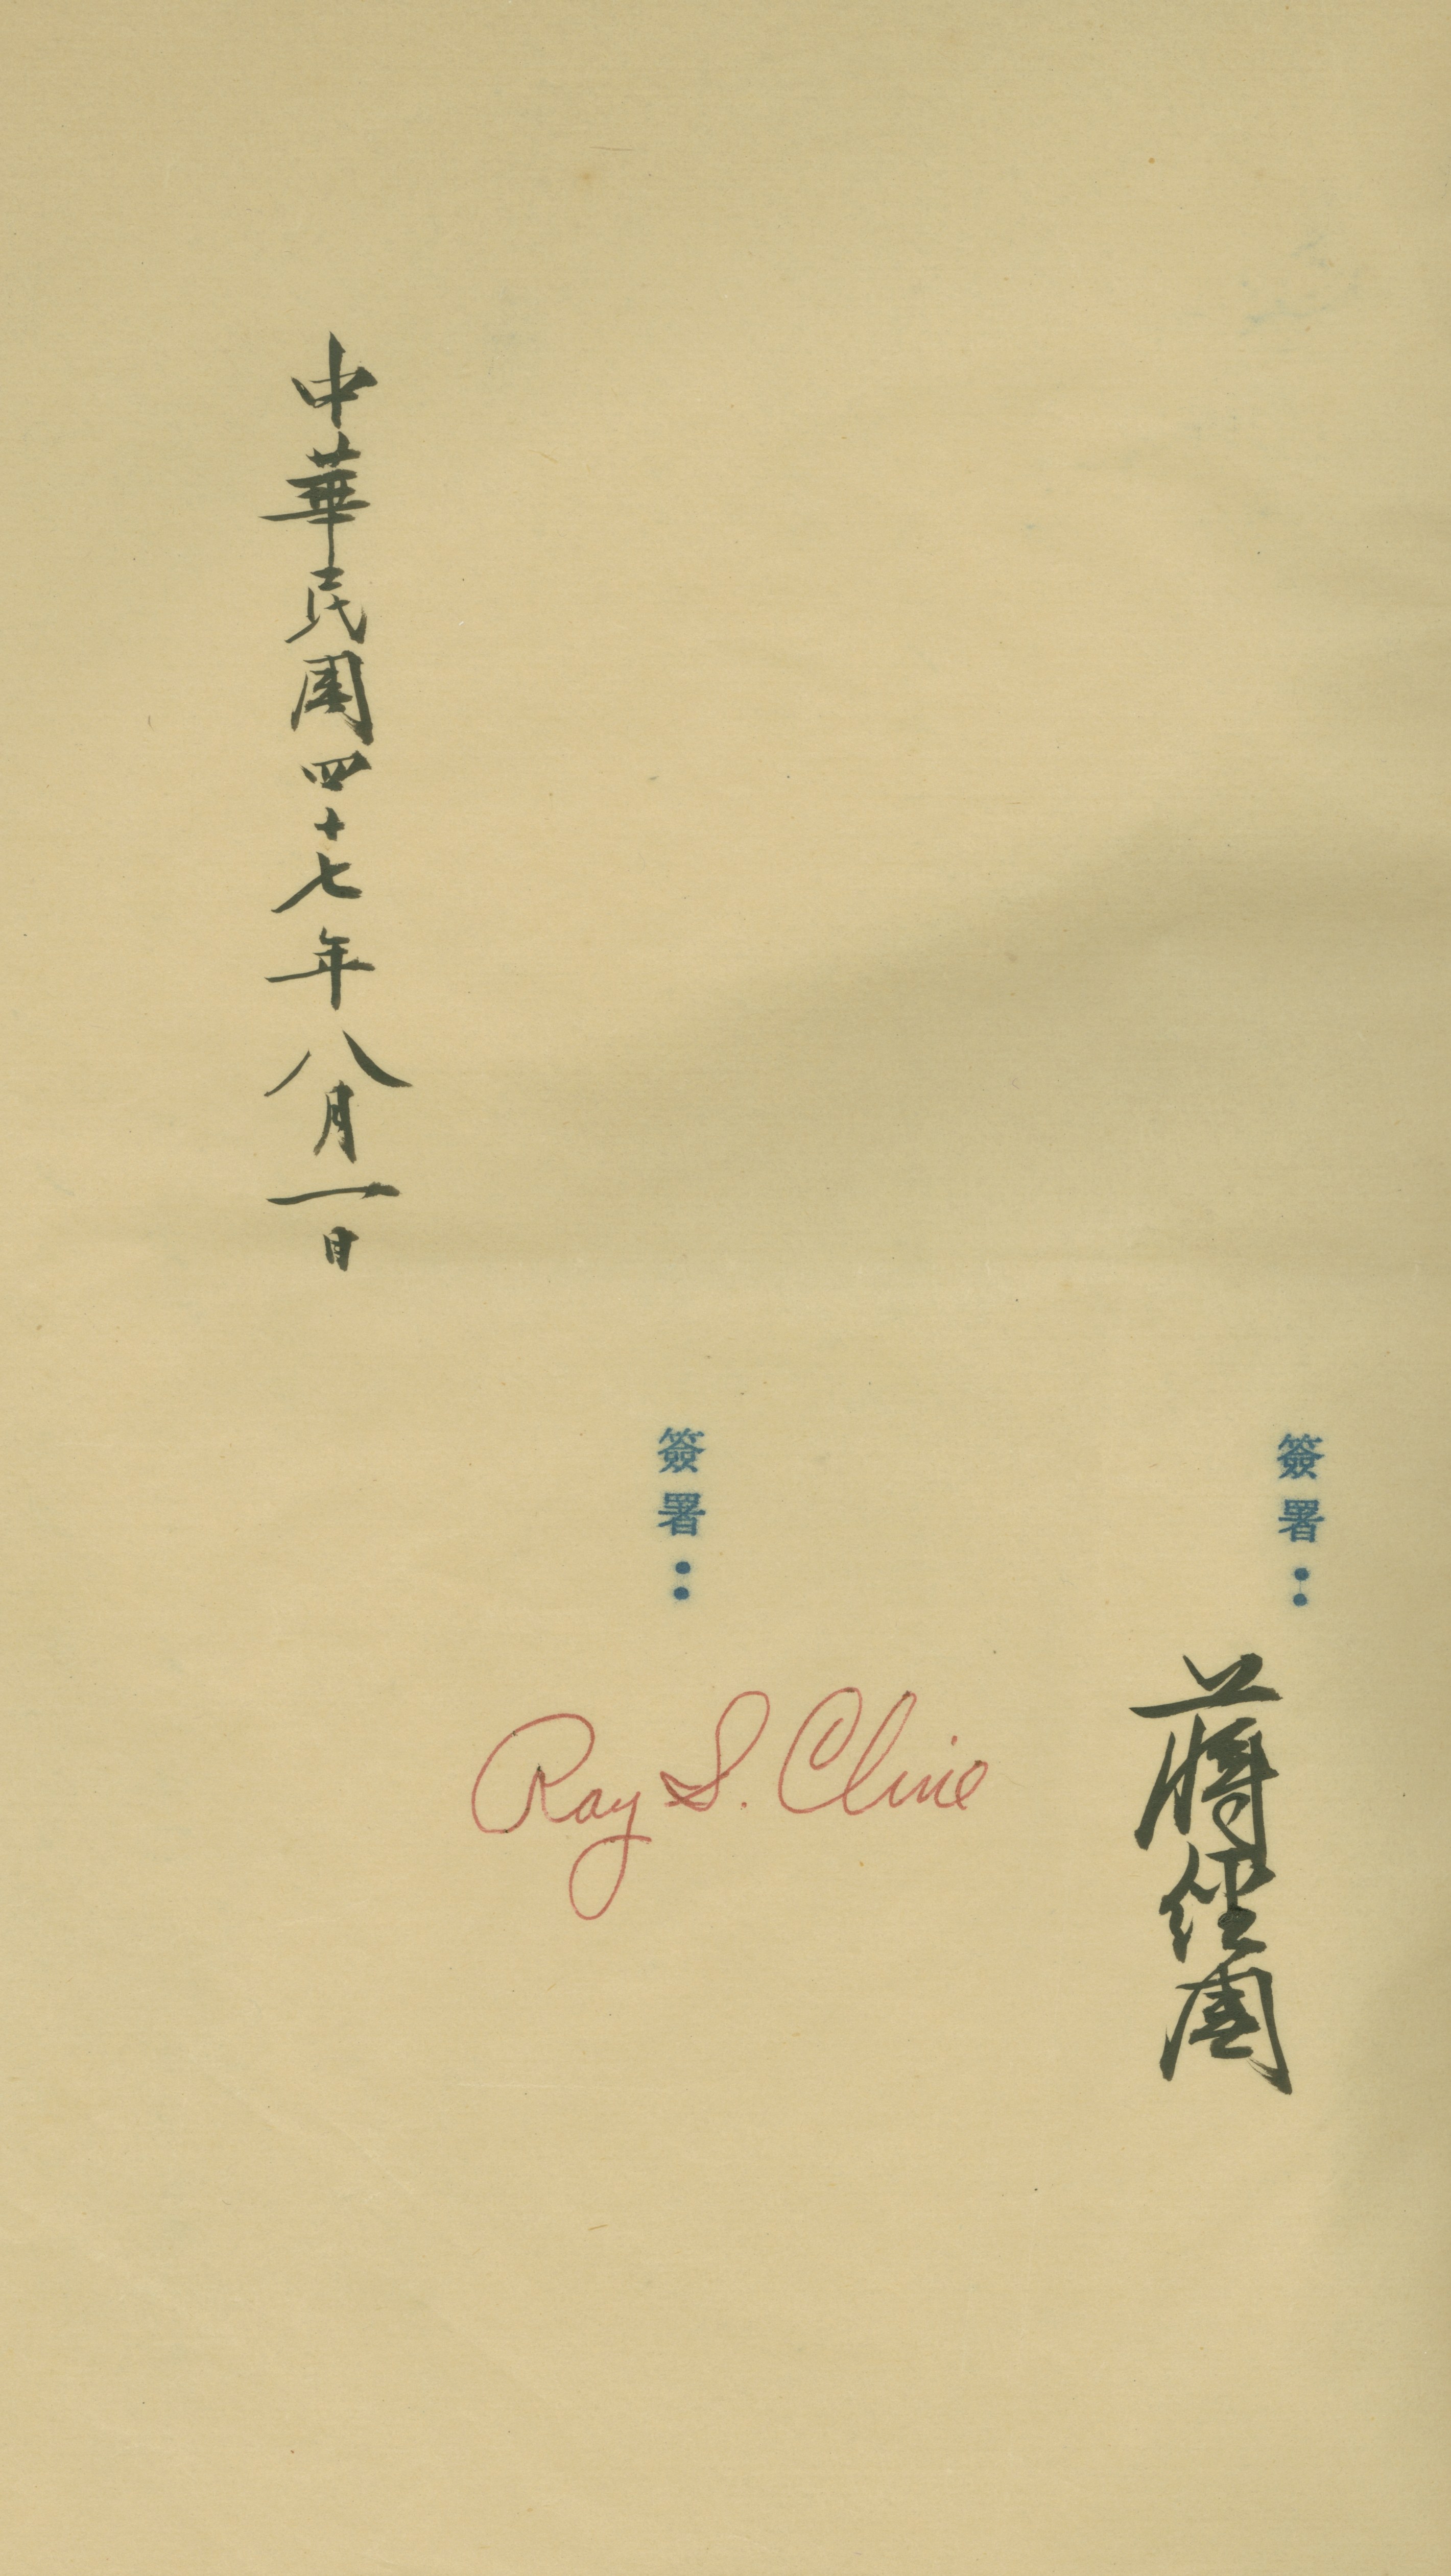 簽署：
蔣經國
簽署：
Ray S. Cline
中華民國四十七年八月一日